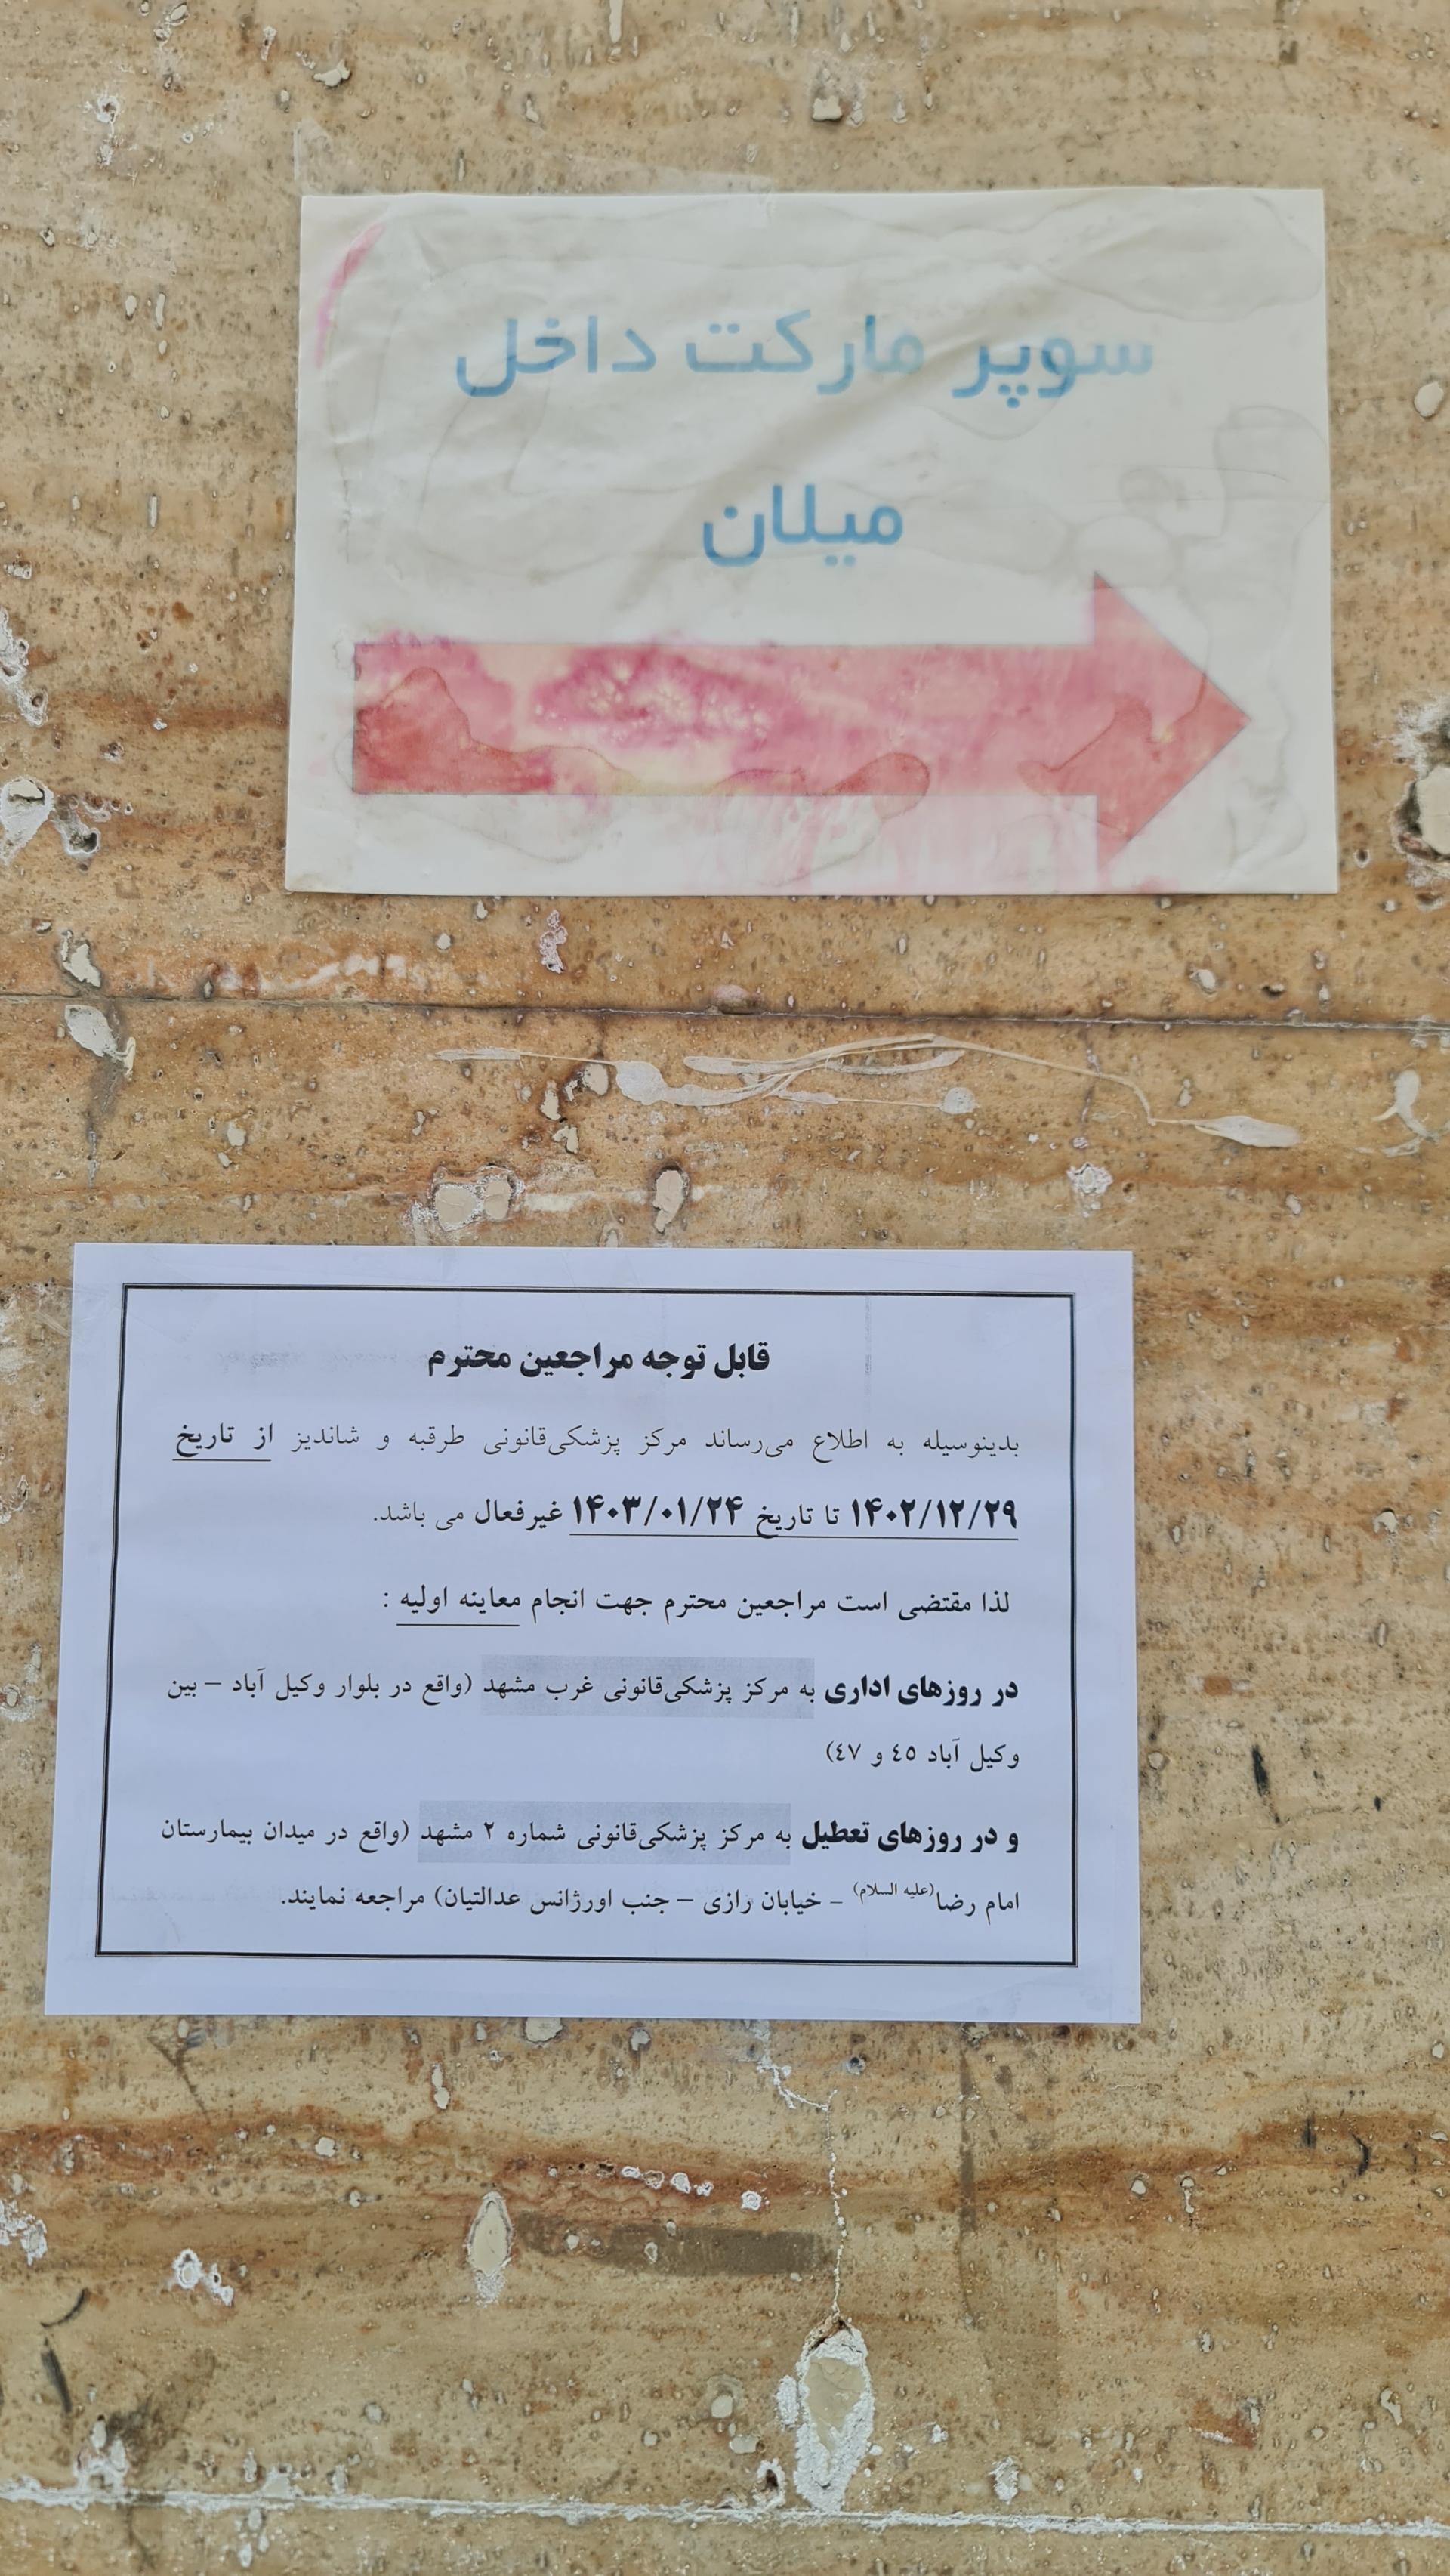 سوپر مارکت داخل
میلان
قابل توجه مراجعین محترم
بدینوسیله به اطلاع می‌رساند مرکز پزشکی‌قانونی طرقبه و شاندیز از تاریخ
۱۴۰۲/۱۲/۲۹ تا تاریخ ۱۴۰۳/۰۱/۲۴ غیرفعال می باشد.
لذا مقتضی است مراجعین محترم جهت انجام معاینه اولیه :
در روزهای اداری به مرکز پزشکی‌قانونی غرب مشهد (واقع در بلوار وکیل آباد – بین
وکیل آباد ٤٥ و ٤٧)
و در روزهای تعطیل به مرکز پزشکی‌قانونی شماره ۲ مشهد (واقع در میدان بیمارستان
امام رضا(علیه السلام) – خیابان رازی – جنب اورژانس عدالتیان) مراجعه نمایند.